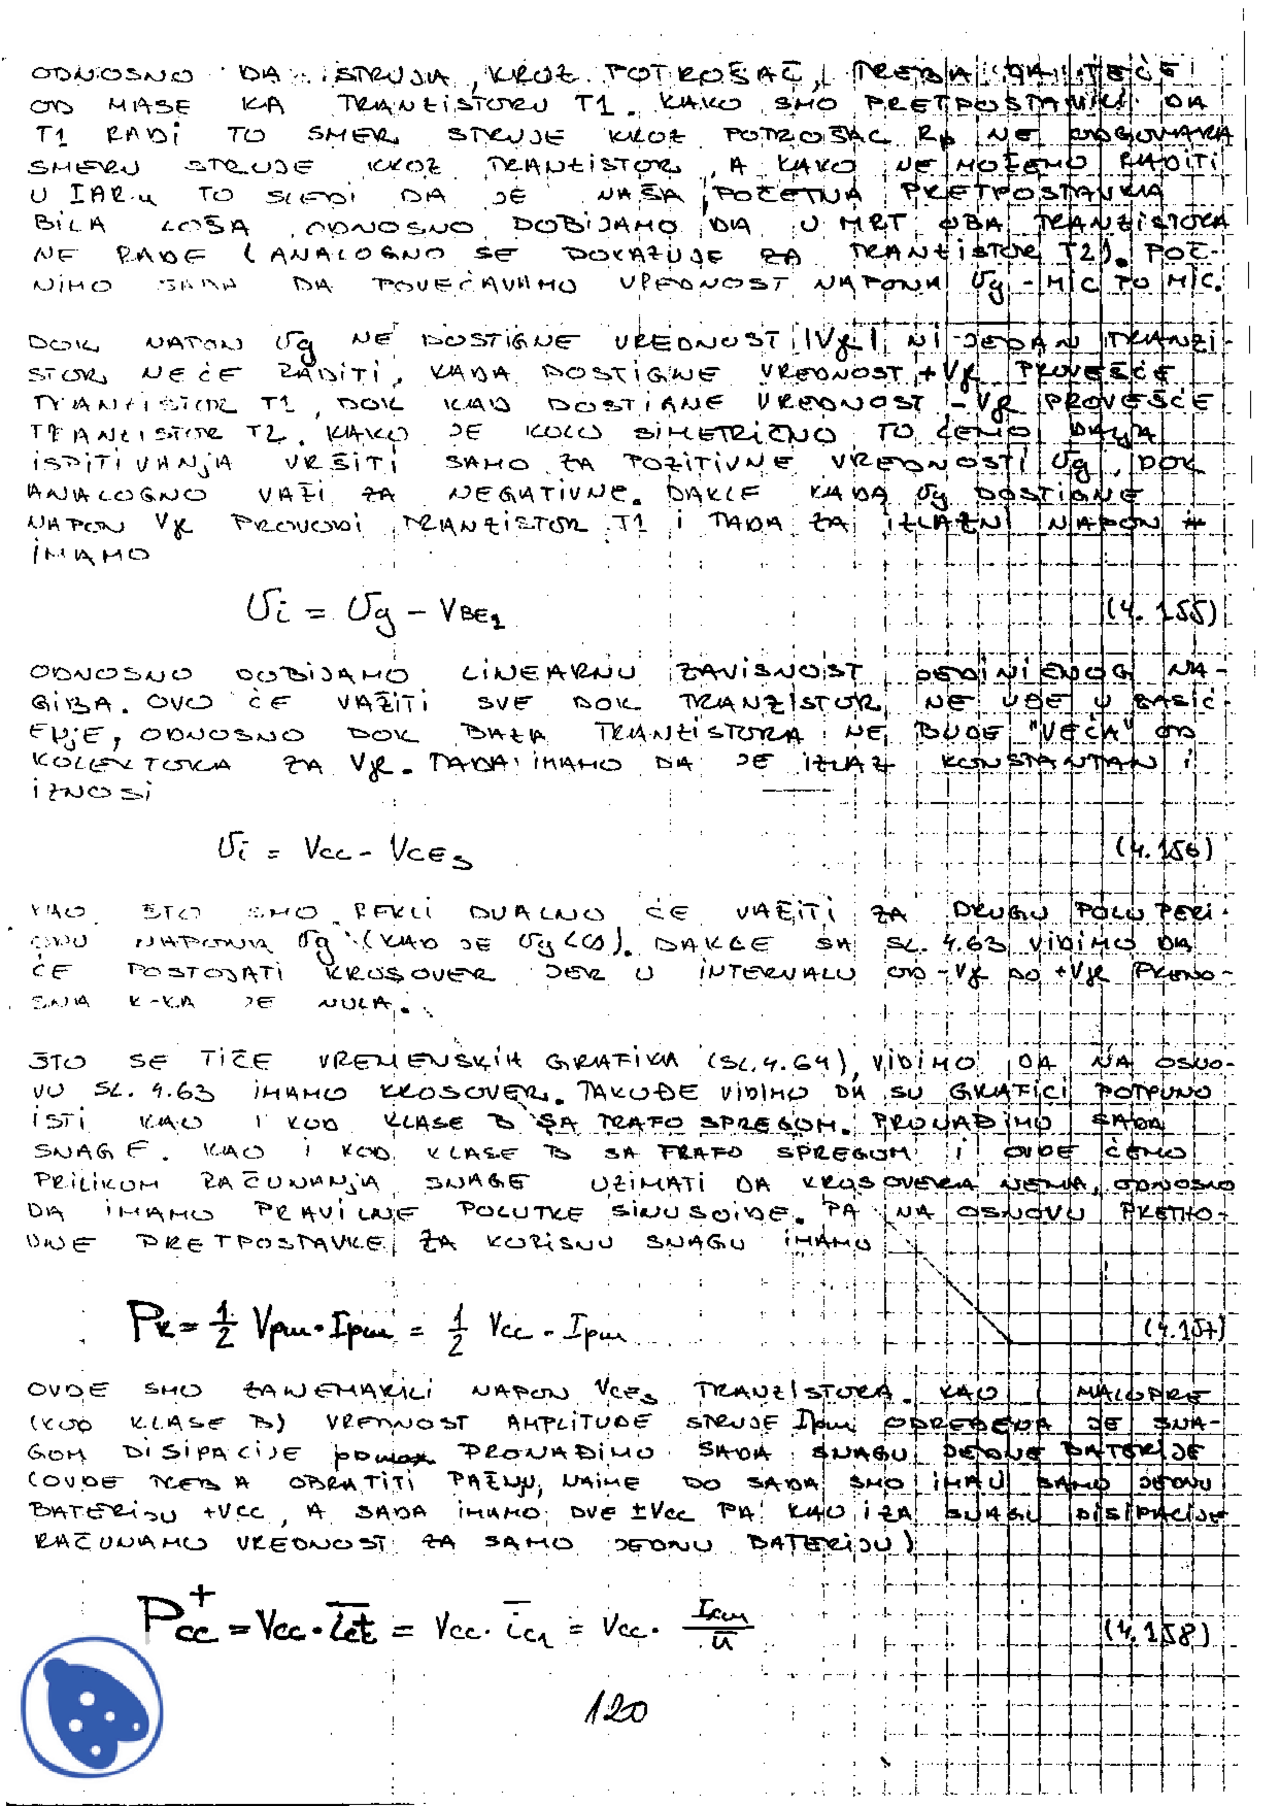 ODNOSNO DA STRUJA, KROZ POTROŠAČ, TREBA DA TEČE
OD MASE KA TRANZISTORU T1. KAKO SMO PRETPOSTAVILI DA
T1 RADI TO SMER STRUJE KROZ POTROŠAČ Rp NE ODGOVARA
SMERU STRUJE KROZ TRANZISTOR, A KAKO NE MOŽEMO RADITI
U IAR-u TO SLEDI DA JE NAŠA POČETNA PRETPOSTAVKA
BILA LOŠA, ODNOSNO DOBIJAMO DA U MRT OBA TRANZISTORA
NE RADE (ANALOGNO SE DOKAZUJE ZA TRANZISTOR T2). POČ-
NIMO SADA DA POVEĆAVAMO VREDNOST NAPONA Ug - MIC PO MIC.
DOK NAPON Ug NE DOSTIGNE VREDNOST |Vγ|, NI JEDAN TRANZI-
STOR NEĆE RADITI, KADA DOSTIGNE VREDNOST +Vγ PROVEŠĆE
TRANZISTOR T1, DOK KAD DOSTIGNE VREDNOST -Vγ PROVEŠĆE
TRANZISTOR T2. KAKO JE KOLO SIMETRIČNO, TO ĆEMO DALJA
ISPITIVANJA VRŠITI SAMO ZA POZITIVNE VREDNOSTI Ug, DOK
ANALOGNO VAŽI ZA NEGATIVNE. DAKLE KADA Ug DOSTIGNE
NAPON Vγ PROVODI TRANZISTOR T1 I TADA ZA IZLAZNI NAPON
IMAMO
Ui = Ug - VBE1 (4.155)
ODNOSNO DOBIJAMO LINEARNU ZAVISNOST JEDINIČNOG NA-
GIBA. OVO ĆE VAŽITI SVE DOK TRANZISTOR NE UĐE U ZASIĆ-
ENJE, ODNOSNO DOK BAZA TRANZISTORA NE BUDE "VEĆA" OD
KOLEKTORA ZA Vγ. TADA IMAMO DA JE IZLAZ KONSTANTAN I
IZNOSI
Ui = Vcc - VCES (4.156)
KAO ŠTO SMO REKLI DUALNO ĆE VAŽITI ZA DRUGU POLUPERI-
ODU NAPONA Ug (KAD JE Ug<0). DAKLE SA SL. 4.63 VIDIMO DA
ĆE POSTOJATI KROSOVER JER U INTERVALU OD -Vγ DO +Vγ PRENO-
SNA K-KA JE NULA.
ŠTO SE TIČE VREMENSKIH GRAFIKA (SL.4.64), VIDIMO DA NA OSNO-
VU SL. 4.63 IMAMO KROSOVER. TAKOĐE VIDIMO DA SU GRAFICI POTPUNO
ISTI KAO I KOD KLASE B SA TRAFO SPREGOM. PRONAĐIMO SADA
SNAGE. KAO I KOD KLASE B SA TRAFO SPREGOM I OVDE ĆEMO
PRILIKOM RAČUNANJA SNAGE UZIMATI DA KROSOVERA NEMA, ODNOSNO
DA IMAMO PRAVILNE POLUTKE SINUSOIDE. PA NA OSNOVU PRETHO-
DNE PRETPOSTAVKE, ZA KORISNU SNAGU IMAMO
Pk = 1/2 Vpm · Ipm = 1/2 Vcc · Ipm (4.157)
OVDE SMO ZANEMARILI NAPON VCES TRANZISTORA. KAO I MALOPRE
(KOD KLASE B) VREDNOST AMPLITUDE STRUJE Ipm ODREĐENA JE SNA-
GOM DISIPACIJE PDmax PRONAĐIMO SADA SNAGU JEDNE BATERIJE
(OVDE TREBA OBRATITI PAŽNJU, NAIME DO SADA SMO IMALI SAMO JEDNU
BATERIJU +Vcc, A SADA IMAMO DVE ±Vcc PA KAO I ZA SNAGU DISIPACIJE
RAČUNAMO VREDNOST ZA SAMO JEDNU BATERIJU)
Pcc+ = Vcc · ict = Vcc · ic1 = Vcc · Ikm/π (4.158)
120